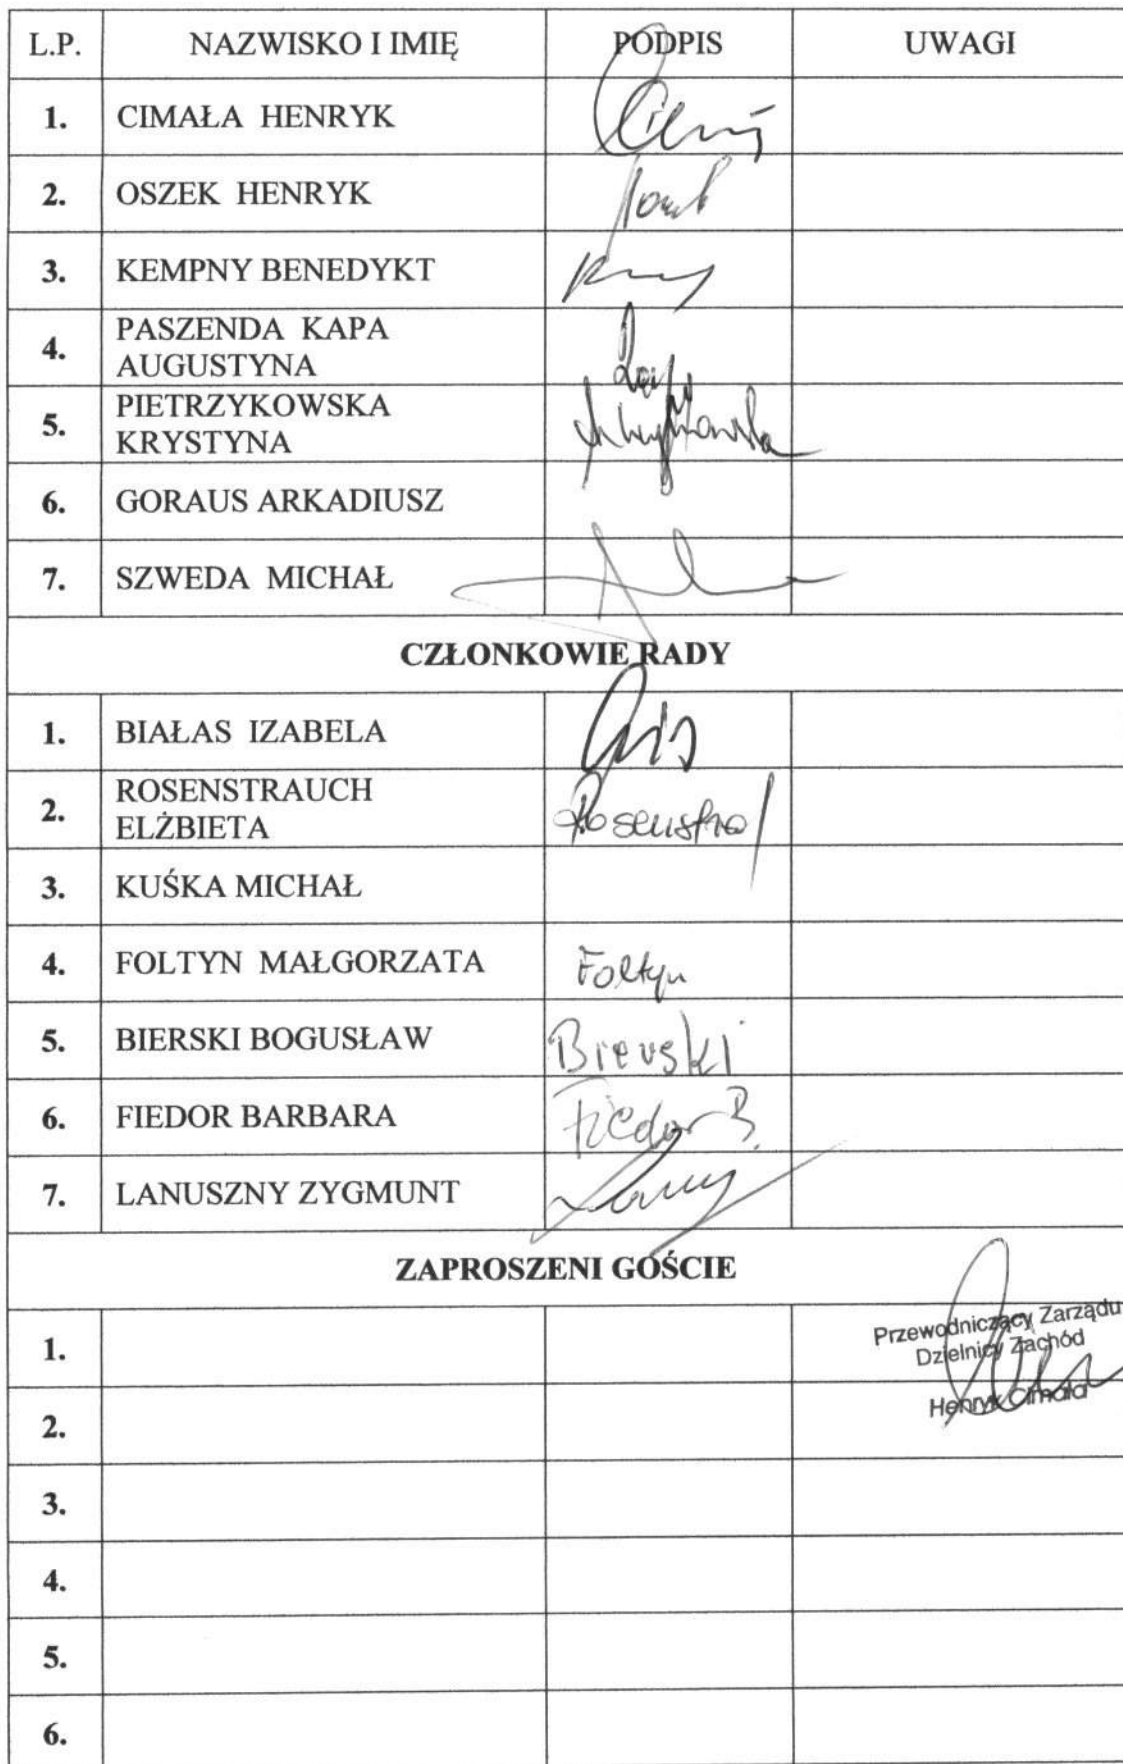 L.P. NAZWISKO I IMIĘ PODPIS UWAGI
1. CIMAŁA HENRYK
2. OSZEK HENRYK
3. KEMPNY BENEDYKT
4. PASZENDA KAPA
AUGUSTYNA
5. PIETRZYKOWSKA
KRYSTYNA
6. GORAUS ARKADIUSZ
7. SZWEDA MICHAŁ
CZŁONKOWIE RADY
1. BIAŁAS IZABELA
2. ROSENSTRAUCH
ELŻBIETA
3. KUŚKA MICHAŁ
4. FOLTYN MAŁGORZATA Foltyn
5. BIERSKI BOGUSŁAW Bierski
6. FIEDOR BARBARA Fiedor B.
7. LANUSZNY ZYGMUNT
ZAPROSZENI GOŚCIE
Przewodniczący Zarządu
Dzielnicy Zachód
Henryk Cimała
1.
2.
3.
4.
5.
6.